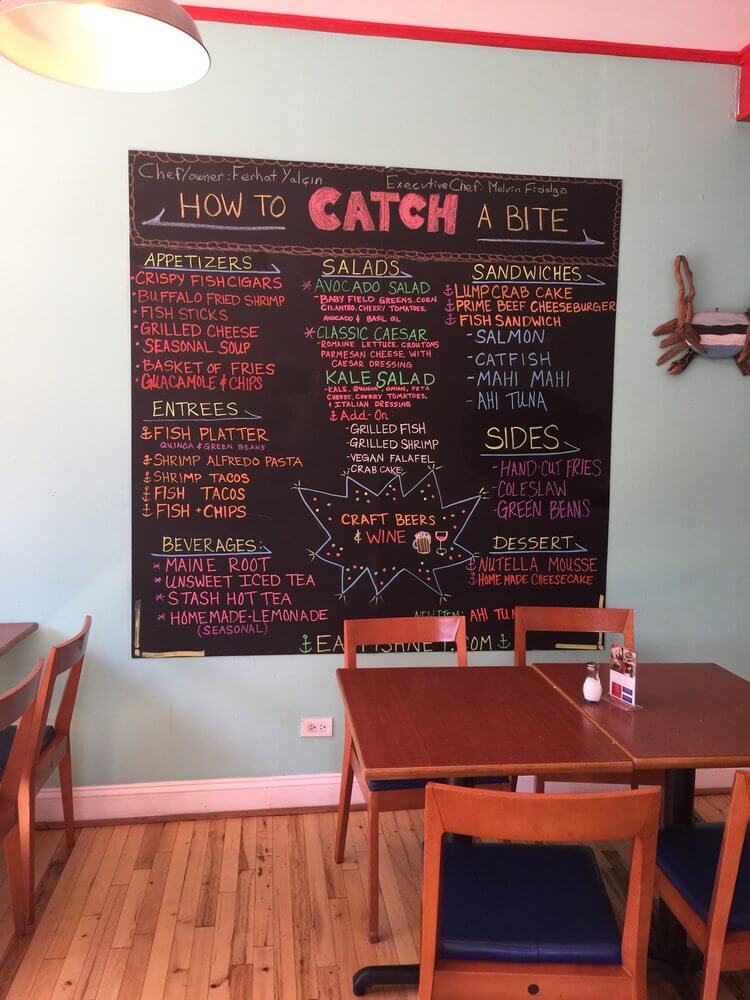 Chef/owner: Ferhat Yalçın
Executive Chef: Melvin Fidalgo
HOW TO CATCH A BITE
APPETIZERS
CRISPY FISH CIGARS
BUFFALO FRIED SHRIMP
FISH STICKS
GRILLED CHEESE
SEASONAL SOUP
BASKET OF FRIES
GUACAMOLE & CHIPS
ENTREES
FISH PLATTER
QUINOA & GREEN BEANS
SHRIMP ALFREDO PASTA
SHRIMP TACOS
FISH TACOS
FISH + CHIPS
BEVERAGES:
* MAINE ROOT
* UNSWEET ICED TEA
* STASH HOT TEA
* HOMEMADE-LEMONADE
(SEASONAL)
SALADS
* AVOCADO SALAD
- BABY FIELD GREENS, CORN
CILANTRO, CHERRY TOMATOES,
AVOCADO & BASIL OIL
* CLASSIC CAESAR
- ROMAINE LETTUCE, CROUTONS
PARMESAN CHEESE, WITH
CAESAR DRESSING
KALE SALAD
- KALE, QUINOA, ONION, FETA
CHEESE, CHERRY TOMATOES,
& ITALIAN DRESSING
Add-On:
- GRILLED FISH
- GRILLED SHRIMP
- VEGAN FALAFEL
CRAB CAKE
CRAFT BEERS
& WINE
SANDWICHES
LUMP CRAB CAKE
PRIME BEEF CHEESEBURGER
FISH SANDWICH
- SALMON
- CATFISH
- MAHI MAHI
- AHI TUNA
SIDES
- HAND-CUT FRIES
- COLESLAW
- GREEN BEANS
DESSERT
NUTELLA MOUSSE
HOME MADE CHEESECAKE
NEW ITEM: AHI TUN
EATFISHNET.COM